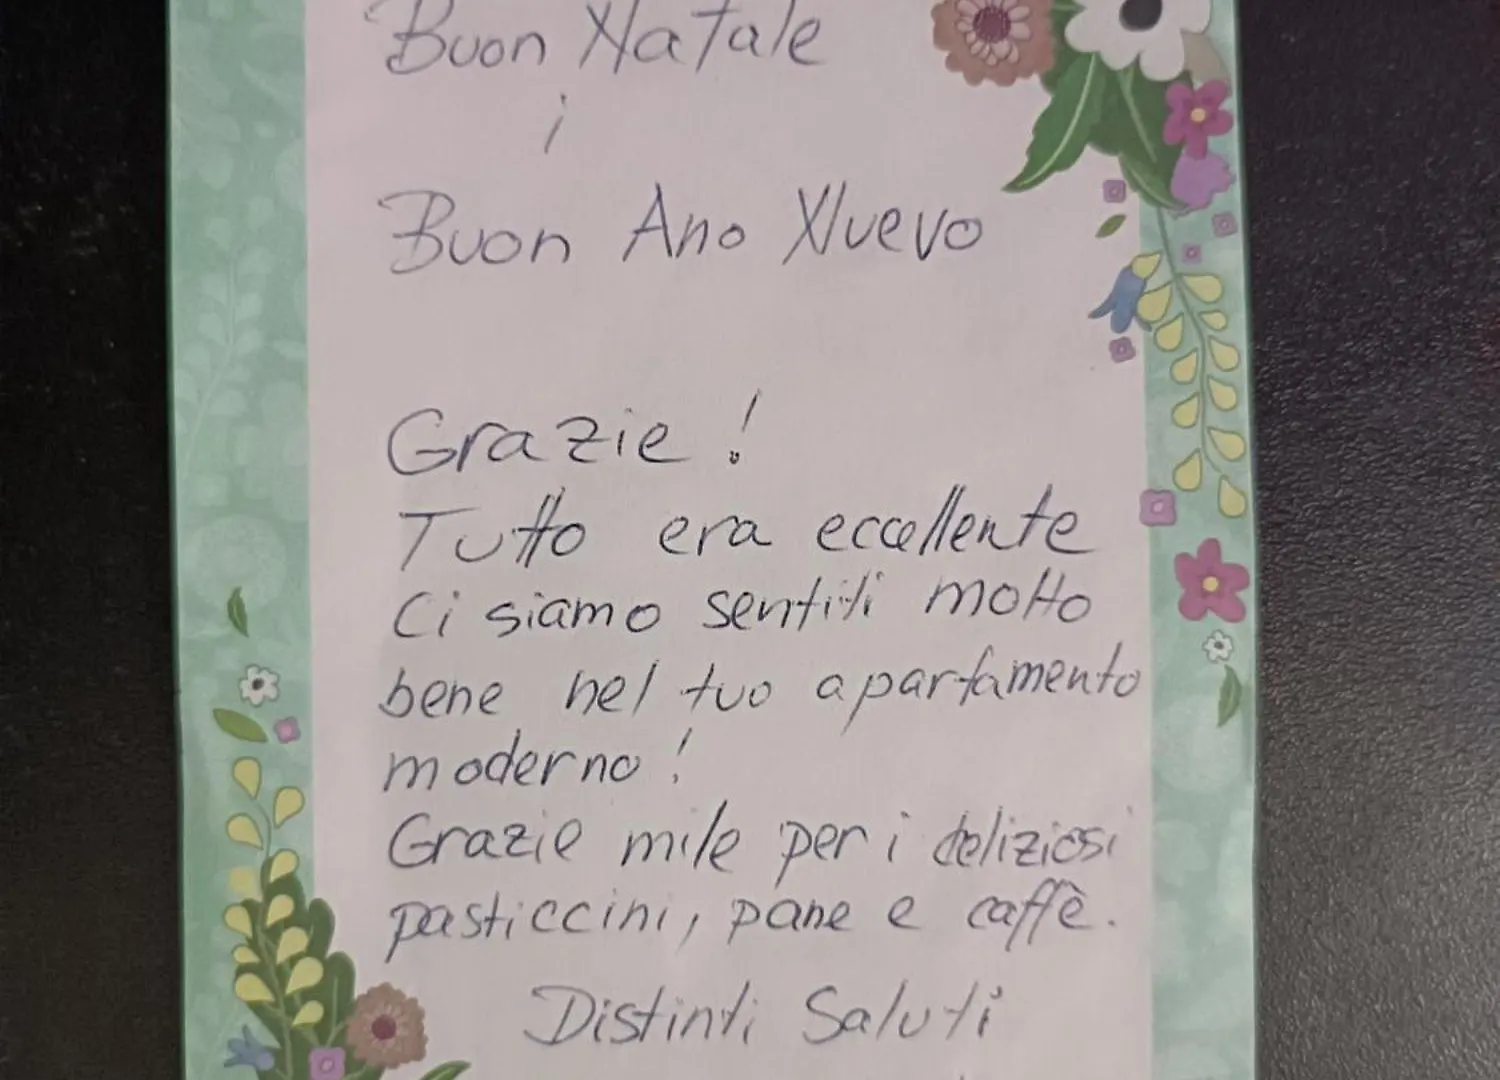 Buon Natale
i
Buon Ano Nuevo
Grazie!
Tutto era eccellente
Ci siamo sentiti molto
bene nel tuo apartamento
moderno!
Grazie mile per i deliziosi
pasticcini, pane e caffè.
Distinti Saluti